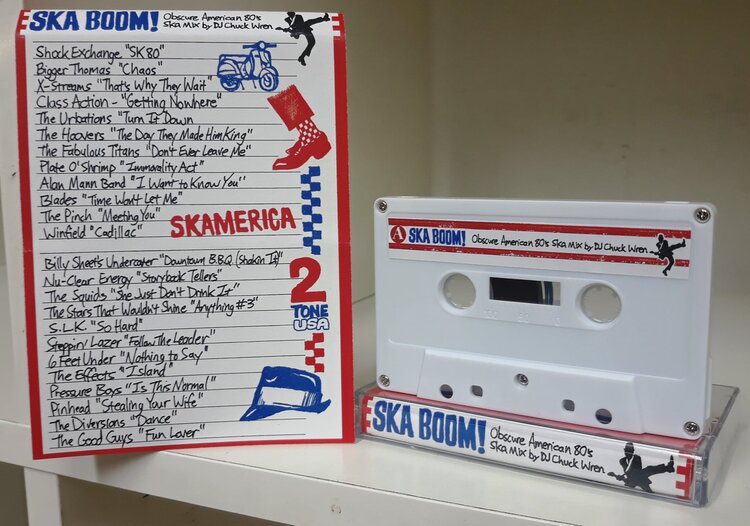 SKA BOOM!
Obscure American 80's
Ska Mix by DJ Chuck Wren
Shock Exchange "SK80"
Bigger Thomas "Chaos"
X-Streams "That's Why They Wait"
Class Action - "Getting Nowhere"
The Urbations "Turn It Down
The Hoovers "The Day They Made Him King"
The Fabulous Titans "Don't Ever Leave Me"
Plate O'Shrimp "Immorality Act"
Alan Mann Band "I Want to Know You"
Blades "Time Won't Let Me"
The Pinch "Meeting You"
Winfield "Cadillac"
SKAMERICA
Billy Sheets Undercater "Downtown B.B.Q. (Shakin It)"
Nu-Clear Energy "Storybook Tellers"
The Squids "She Just Don't Drink It"
The Stars That Wouldn't Shine "Anything #3"
S.L.K. "So Hard"
Steppin' Lazer "Follow The Leader"
6 Feet Under "Nothing to Say"
The Effects "Island"
Pressure Boys "Is This Normal"
Pinhead "Stealing Your Wife"
The Diversions "Dance"
The Good Guys "Fun Lover"
2
TONE
USA
A SKA BOOM! Obscure American 80's Ska Mix by DJ Chuck Wren
SKA BOOM!
Obscure American 80's
Ska Mix by DJ Chuck Wren